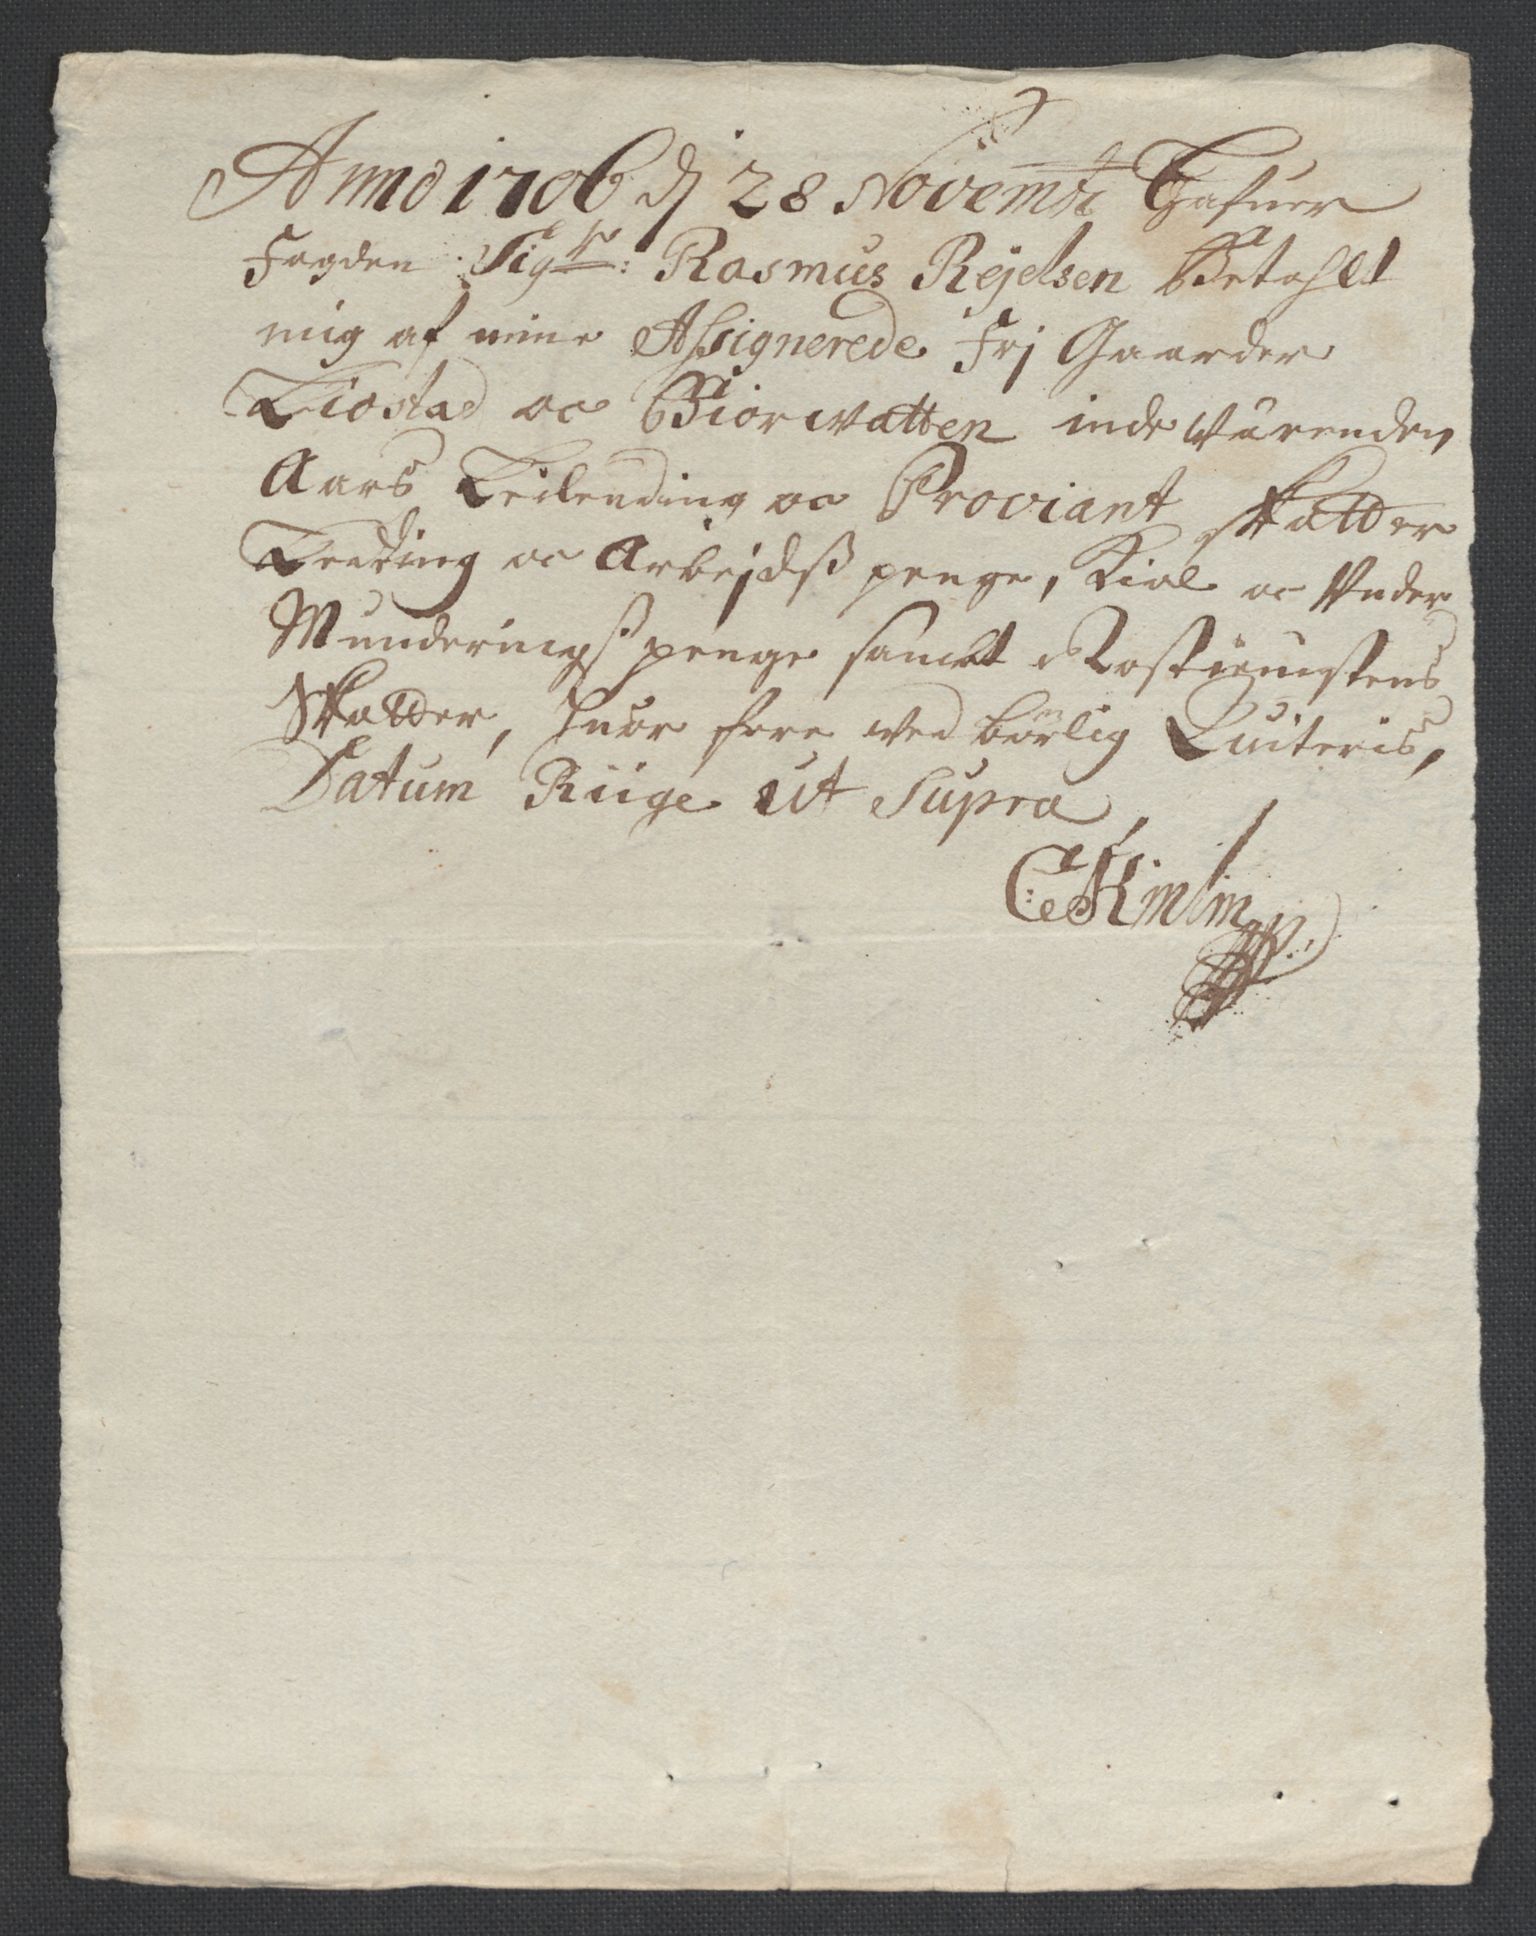 Anno 1706 dj 28 Novembr: Hafuer
Fogden Sigr: Rasmus Rejelsen Betahlt
mig af mine Assignerede Frj Gaarder
Kiostad oc Biorwatten inde Værenden
Aars Leilending oc Proviant Skatter
Leeding oc Arbejdsß penge, Kiol oc Under
Munderingsß penge sambt Rostienistens
Skatter, huor fore ved børlig Quiteris,
Datum Riige ut Supra,